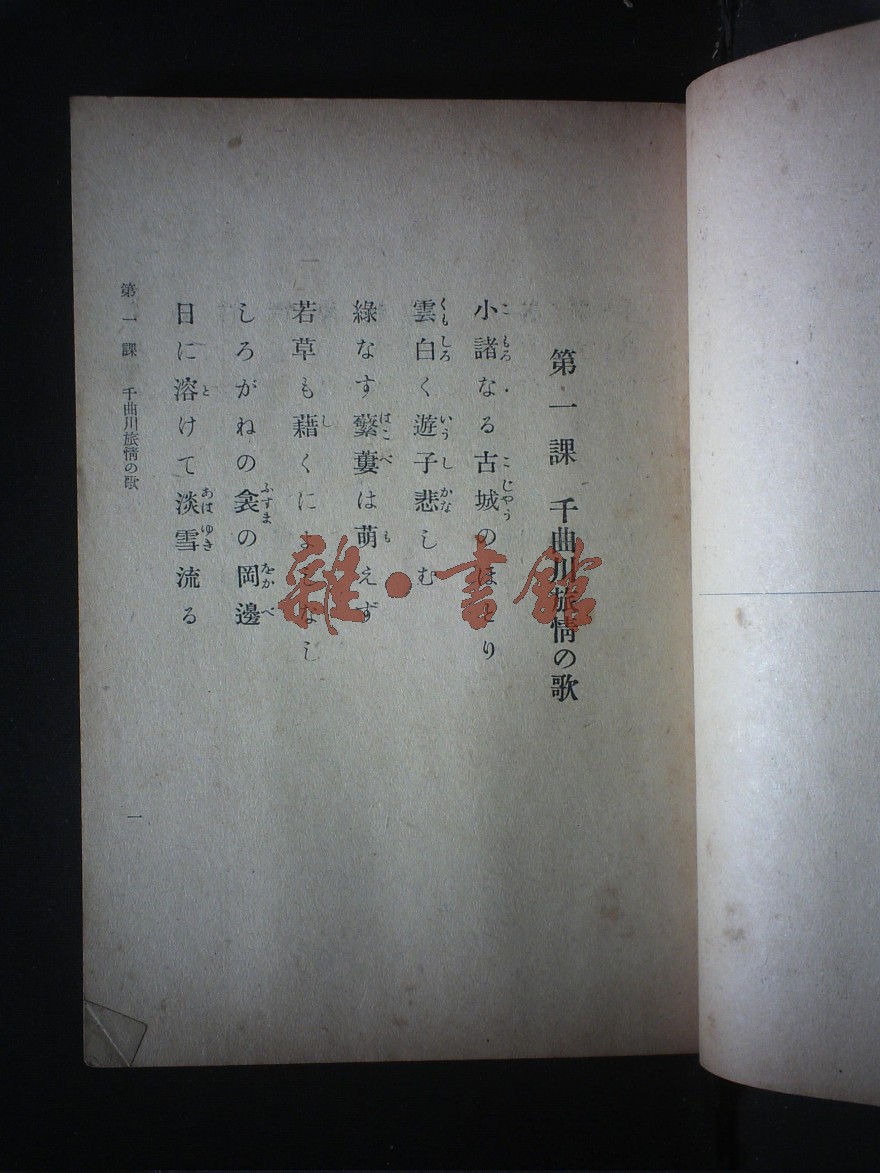 第一課　千曲川旅情の歌
小諸なる古城のほとり
雲白く遊子悲しむ
綠なす蘩蔞は萌えず
若草も藉くによしなし
しろがねの衾の岡邊
日に溶けて淡雪流る
第一課　千曲川旅情の歌
一
雜·書館